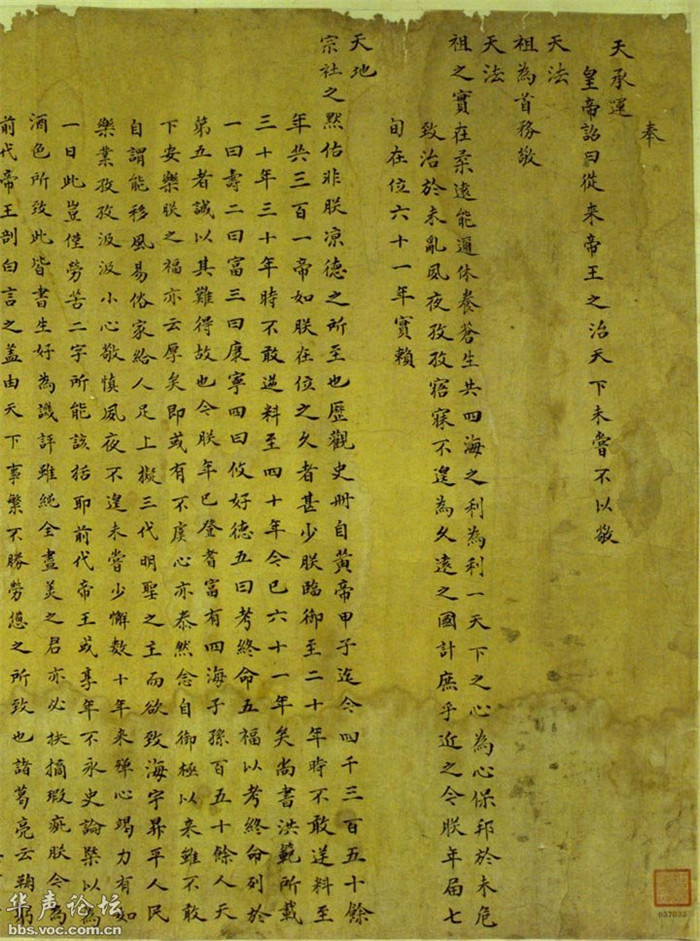 奉
天承運
皇帝詔曰從來帝王之治天下未嘗不以敬
天法
祖為首務敬
天法
祖之實在柔遠能邇休養蒼生共四海之利為利一天下之心為心保邦於未危
致治於未亂夙夜孜孜寤寐不遑為久遠之國計庶乎近之今朕年屆七
旬在位六十一年實賴
天地
宗社之黙佑非朕凉德之所至也歷觀史冊自黃帝甲子迄今四千三百五十餘
年共三百一帝如朕在位之久者甚少朕臨御至二十年時不敢逆料至
三十年三十年時不敢逆料至四十年今已六十一年矣尚書洪範所載
一曰壽二曰富三曰康寧四曰攸好德五曰考終命五福以考終命列於
第五者誠以其難得故也今朕年已登耆富有四海子孫百五十餘人天
下安樂朕之福亦云厚矣即或有不虞心亦泰然念自御極以來雖不敢
自謂能移風易俗家給人足上擬三代明聖之主而欲致海宇昇平人民
樂業孜孜汲汲小心敬慎夙夜不遑未嘗少懈數十年來殫心竭力有如
一日此豈僅勞苦二字所能該括耶前代帝王或享年不永史論槩以為
酒色所致此皆書生好為譏評雖純全盡美之君亦必抉摘瑕疵朕今為
前代帝王剖白言之蓋由天下事繁不勝勞憊之所致也諸葛亮云鞠躬
037033
华声论坛
bbs.voc.com.cn